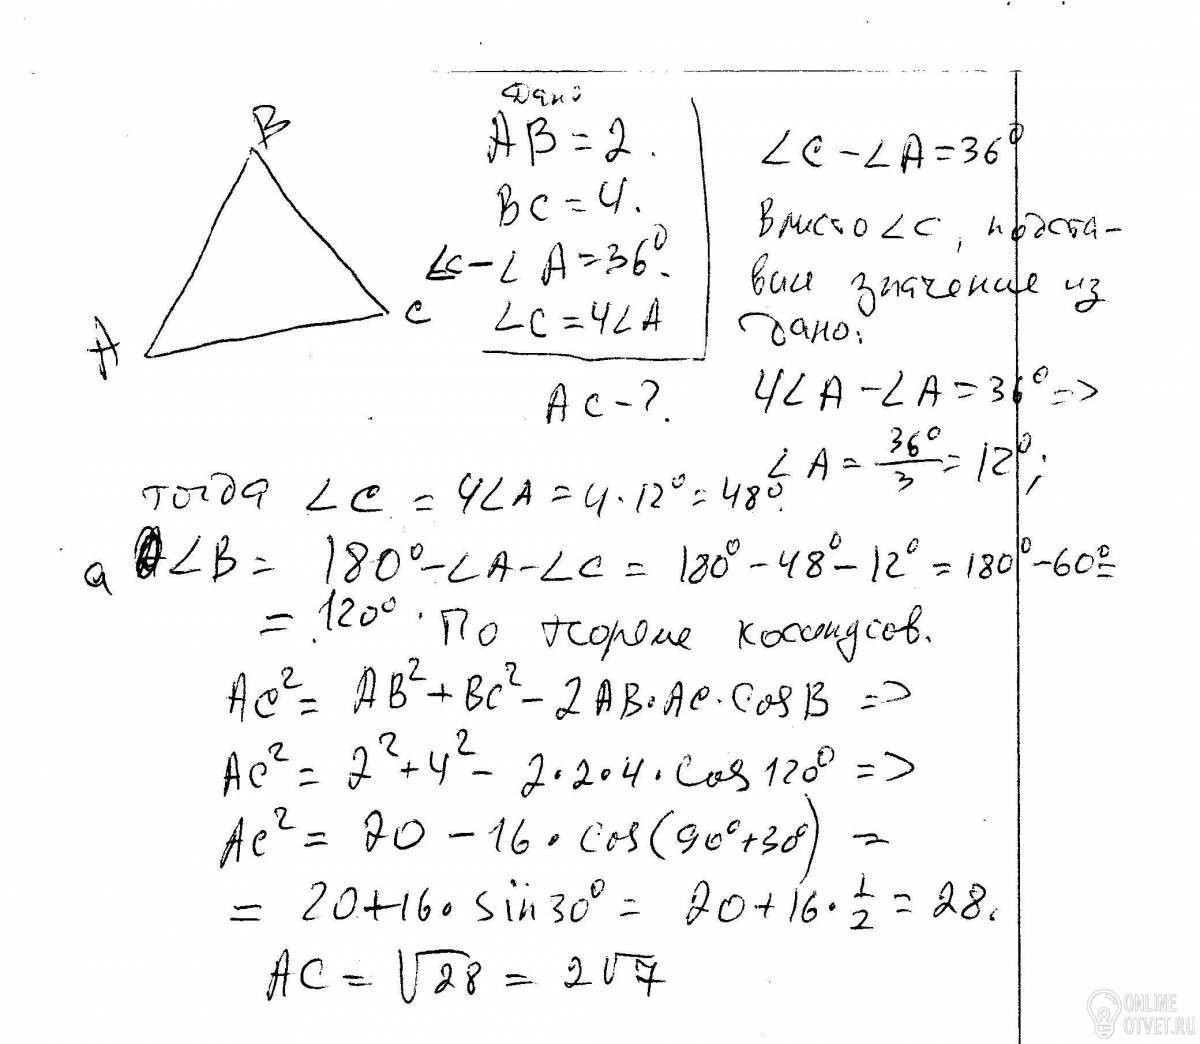 B
A
C
Дано
AB = 2.
BC = 4.
∠C - ∠A = 36°.
∠C = 4∠A
AC - ?
∠C - ∠A = 36°
Вместо ∠C, подста-
вим значение из
Дано:
4∠A - ∠A = 36° =>
∠A = 36°/3 = 12°;
тогда ∠C = 4∠A = 4·12° = 48°.
а ∠B = 180° - ∠A - ∠C = 180° - 48° - 12° = 180° - 60° =
= 120°. По теореме косинусов.
AC² = AB² + BC² - 2AB·AC·cosB =>
AC² = 2² + 4² - 2·2·4·cos120° =>
AC² = 20 - 16·cos(90° + 30°) =
= 20 + 16·sin30° = 20 + 16·1/2 = 28.
AC = √28 = 2√7
ONLINE
OTVET.RU